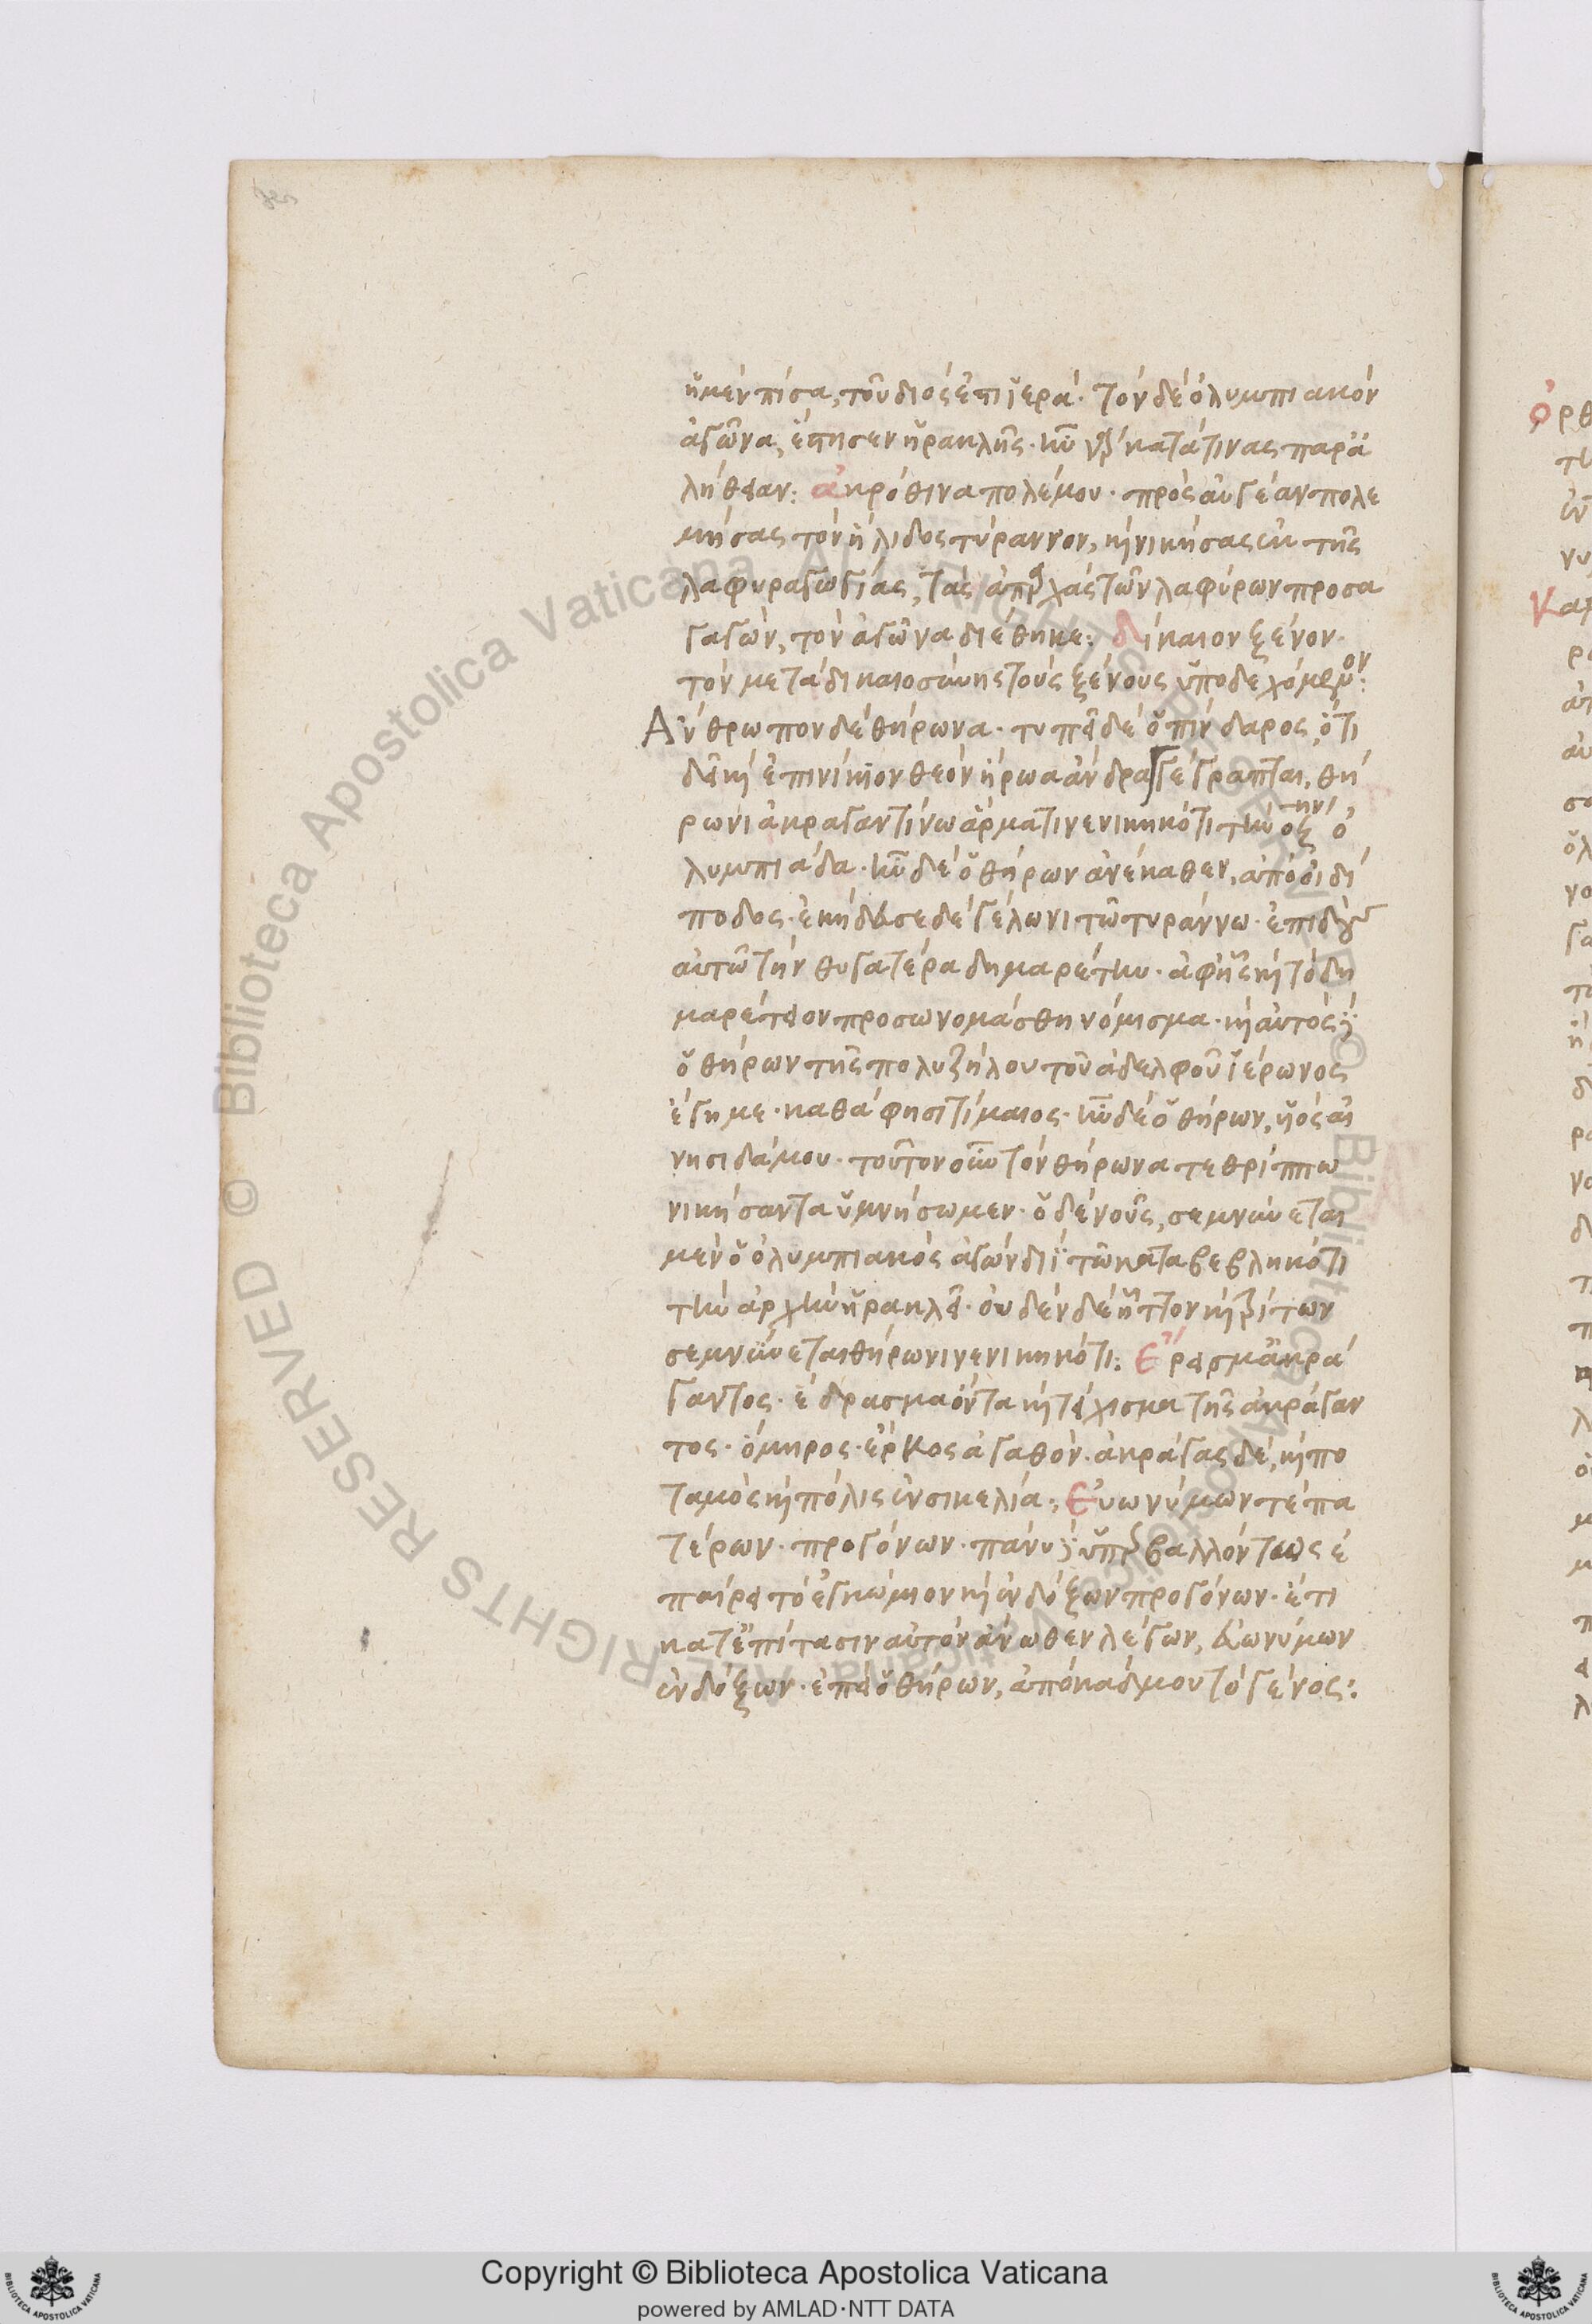 ἡ μὲν πίσα, τοῦ διὸς ἐστὶ ἱερά· τὸν δὲ ὀλυμπιακὸν
ἀγῶνα, ἔστησεν ἡρακλῆς· κατά τινας παρὰ
λήθειαν: ἀκρόθινα πολέμου· πρὸς αὐγέαν πολε
μήσας τὸν ἤλιδος τύραννον, καὶ νικήσας ἐκ τῆς
λαφυραγωγίας, τὰς ἀπαρχὰς τῶν λαφύρων προσα
γαγών, τὸν ἀγῶνα διέθηκε: δίκαιον ξένον·
τὸν μετὰ δικαιοσύνης τοὺς ξένους ὑποδεχόμενον:
Ἄνθρωπον δὲ θήρωνα· δὲ ὁ πίνδαρος, ὅτι
ἐπινίκιον θεὸν ἥρωα ἄνδρα γέγραπται, θή
ρωνι ἀκραγαντίνω ἅρματι νενικηκότι τὴν οξ ην ὀ
λυμπιάδα· ἦν δὲ ὁ θήρων ἀνέκαθεν, ἀπὸ οἰδί
ποδος· ἐκήδευσε δὲ γέλωνι τῶ τυράννω· ἐπιδοὺς
αὐτῶ τὴν θυγατέρα δημαρέτην· ἀφ' ἧς καὶ τὸ δη
μαρέτειον προσωνομάσθη νόμισμα· καὶ αὐτὸς δὲ
ὁ θήρων τῆς πολυζήλου τοῦ ἀδελφοῦ ἱέρωνος
ἔγημε· καθά φησι τίμαιος· ἦν δὲ ὁ θήρων, υἱὸς αἰ
νησιδάμου· τοῦτον οὖν τὸν θήρωνα τεθρίππω
νικήσαντα ὑμνήσωμεν· ὁ δὲ νοῦς, σεμνύνεται
μὲν ὁ ὀλυμπιακὸς ἀγὼν διῒ τῶ καταβεβληκότι
τὴν ἀρχὴν ἡρακλεῖ· οὐδὲν δὲ ἧττον καὶ τρίτον
σεμνύνεται θήρωνι νενικηκότι: Ἔρεισμ' ἀκρά
γαντος· ἕδρασμα ὄντα καὶ τείχισμα τῆς ἀκράγαν
τος· ὅμηρος· ἕρκος ἀγαθόν· ἀκράγας δὲ, καὶ πο
ταμὸς καὶ πόλις ἐν σικελία: Εὐωνύμων τε πα
τέρων· προγόνων· πάνυ δὲ ὑπερβαλλόντως ἐ
παίρει τὸ ἐγκώμιον καὶ ἐνδόξων προγόνων· ἔτι
κατ' ἐπίτασιν αὐτὸν ἄνωθεν λέγων, εὐωνύμων
ἐνδόξων· ἐπεὶ ὁ θήρων, ἀπὸ κάδμου τὸ γένος:
Copyright © Biblioteca Apostolica Vaticana
powered by AMLAD·NTT DATA